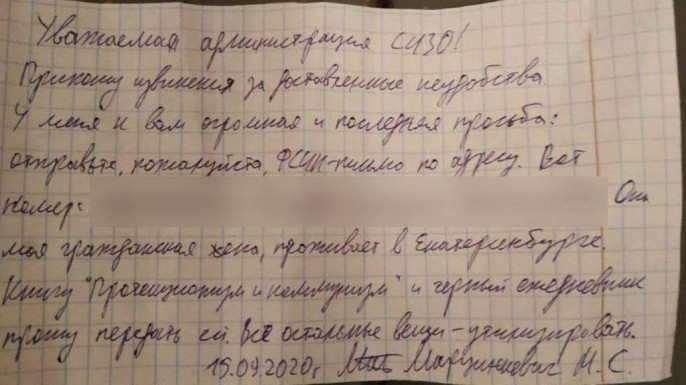 Уважаемая администрация СИЗО!
Приношу извинения за доставленные неудобства.
У меня к вам огромная и последняя просьба:
отправьте, пожалуйста, ФСИН-письмо по адресу. Вот
номер: Она
моя гражданская жена, проживает в Екатеринбурге.
Книгу "Протекционизм и коммунизм" и черный ежедневник
прошу передать ей. Все остальные вещи - утилизировать.
15.09.2020г Марцинкевич М. С.